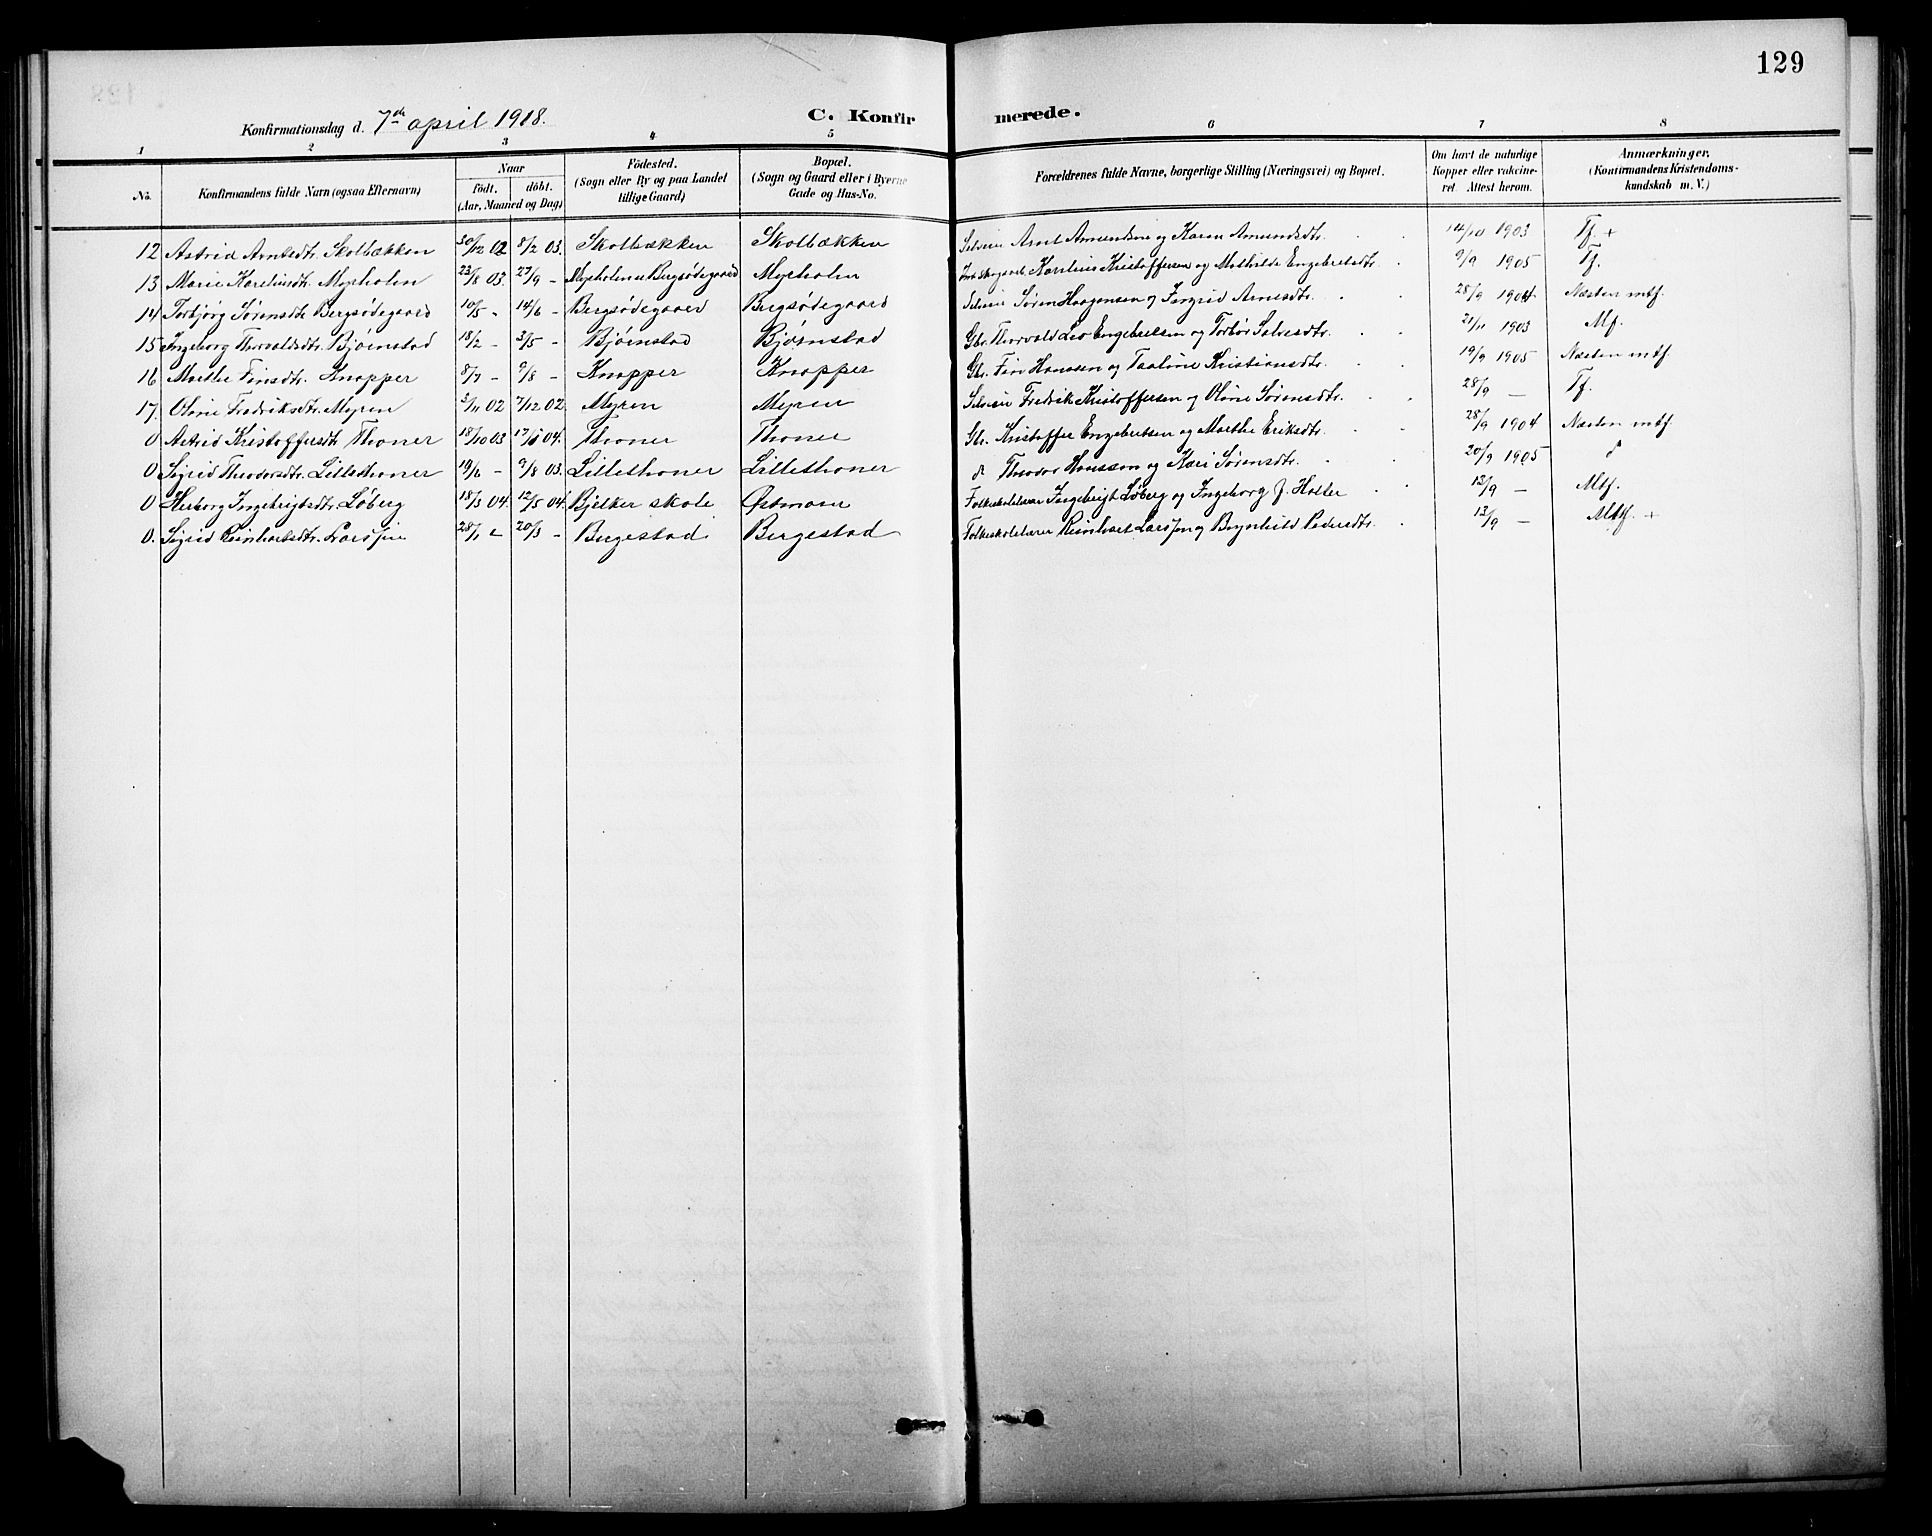 129
Konfirmationsdag d. 7de april 1918.
C. Konfirmerede.
1 2 3 4 5 6 7 8
No.
Konfirmandens fulde Navn (ogsaa Efternavn)
Naar
født. døbt.
(Aar, Maaned og Dag)
Fødested.
(Sogn eller By og paa Landet tillige Gaard)
Bopæl.
(Sogn og Gaard eller i Byerne Gade og Hus-No.
Forældrenes fulde Navne, borgerlige Stilling (Næringsvei) og Bopæl.
Om havt de naturlige Kopper eller vakcineret. Attest herom.
Anmærkninger.
(Konfirmandens Kristendomskundskab m. V.)
12 Astrid Arntsdtr. Skolbækken 30/12 02 8/2 03. Skolbækken Skolbækken Selveier Arnt Amundsen og Karen Amundsdtr. 14/10 1903 Tf. +
13 Marie Kareliusdtr. Myrholen 23/8 03. 27/9 - Myrholen u. Bergsødegaard Myrholen Karelius Kristoffersen og Mathilde Engebretsdtr. 9/9 1905 Tf.
14 Torbjørg Sørensdtr. Bergsødegaard 10/5 - 14/6 - Bergsødegaard Bergsødegaard Selveier Søren Haagensen og Ingrid Arnesdtr. 28/9 1904. Næsten mtf.
15 Ingeborg Thorvaldsdtr. Bjørnstad 18/2 - 3/5 - Bjørnstad Bjørnstad Gbr. Thorvald Leo Engebretsen og Torbør Salvesdtr. 21/11 1903 Mf.
16 Marthe Finsdtr. Knapper 8/7 - 9/8 - Knapper Knapper Gbr. Fin Hansen og Taaline Kristiansdtr. 19/9 1905 Næsten mtf.
17. Oline Fredriksdtr. Myren 3/11 02 7/12 02. Myren Myren Selveier Fredrik Kristoffersen og Oline Sørensdtr. 28/9 — Tf.
0 Astrid Kristoffersdtr. Thoner 18/10 03 17/1 04. Thoner Thoner Gbr. Kristoffer Engebretsen og Marthe Eriksdtr. 28/9 1904 Næsten mtf.
0 Sigrid Theodorsdtr. Lillethoner 19/6 - 9/8 03. Lillethoner Lillethoner d Theodor Hanssen og Kari Sørensdtr. 20/9 1905
0 Herborg Ingebrigtsdtr. Løberg 18/3 04. 12/5 04. Bjelker skole Østmoen Folkeskolelærer Ingebrigt Løberg og Ingeborg f. Holter 13/9 — Mtf.
0. Sigrid Reinhartsdtr. Larsen 28/1 - 20/3 - Bergestad Bergestad Folkeskolelærer Reinhart Larsen og Brynhild Pedersdtr. 13/9 — Mtf. +